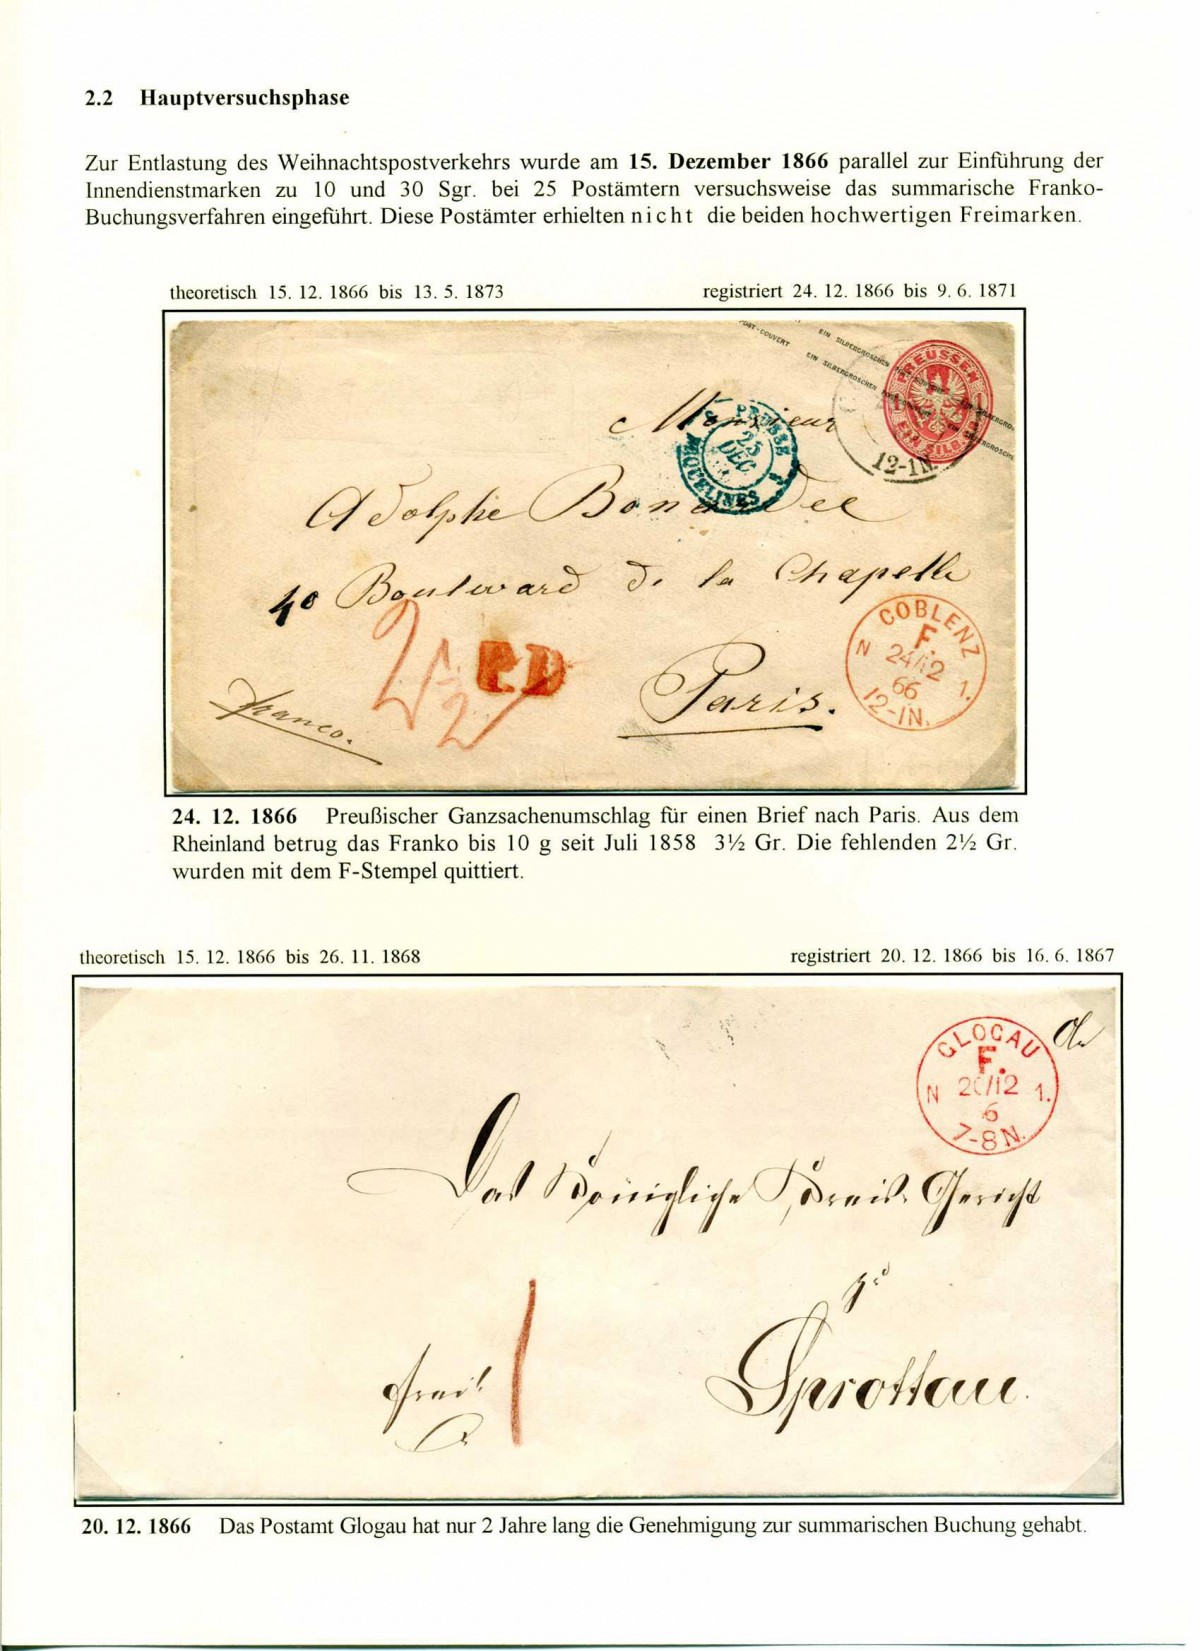 2.2 Hauptversuchsphase
Zur Entlastung des Weihnachtspostverkehrs wurde am 15. Dezember 1866 parallel zur Einführung der
Innendienstmarken zu 10 und 30 Sgr. bei 25 Postämtern versuchsweise das summarische Franko-
Buchungsverfahren eingeführt. Diese Postämter erhielten nicht die beiden hochwertigen Freimarken.
theoretisch 15. 12. 1866 bis 13. 5. 1873
registriert 24. 12. 1866 bis 9. 6. 1871
POST-COUVERT
EIN SILBERGROSCHEN
EIN SILBERGROSCHEN
PREUSSEN
EIN SILB.GR.
12-1N.
PRUSSE
25
DEC
Monsieur
Adolphe
40 Boulevard de la Chapelle
2 1/2
P.D
Paris.
franco.
COBLENZ
F.
N 24/12 1.
66
12-1N.
24. 12. 1866 Preußischer Ganzsachenumschlag für einen Brief nach Paris. Aus dem
Rheinland betrug das Franko bis 10 g seit Juli 1858 3½ Gr. Die fehlenden 2½ Gr.
wurden mit dem F-Stempel quittiert.
theoretisch 15. 12. 1866 bis 26. 11. 1868
registriert 20. 12. 1866 bis 16. 6. 1867
GLOGAU
F.
N 20/12 1.
6
7-8N.
Das Königliche Kreis-Gericht
zu
Sprottau.
frei!
1
20. 12. 1866 Das Postamt Glogau hat nur 2 Jahre lang die Genehmigung zur summarischen Buchung gehabt.